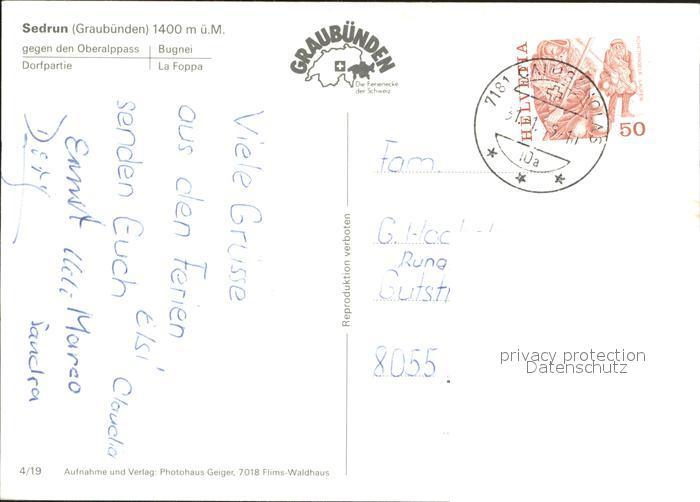 Sedrun (Graubünden) 1400 m ü.M.
gegen den Oberalppass | Bugnei
Dorfpartie | La Foppa
GRAUBÜNDEN
Die Ferienecke
der Schweiz
HELVETIA
50
7181
10a
Viele Grüsse
aus den Ferien
senden Euch Elsi Claudia
Ernst Ueli Marco
Sandra
Reproduktion verboten
Fam.
G.
Gutst
8055
privacy protection
Datenschutz
4/19 Aufnahme und Verlag: Photohaus Geiger, 7018 Flims-Waldhaus